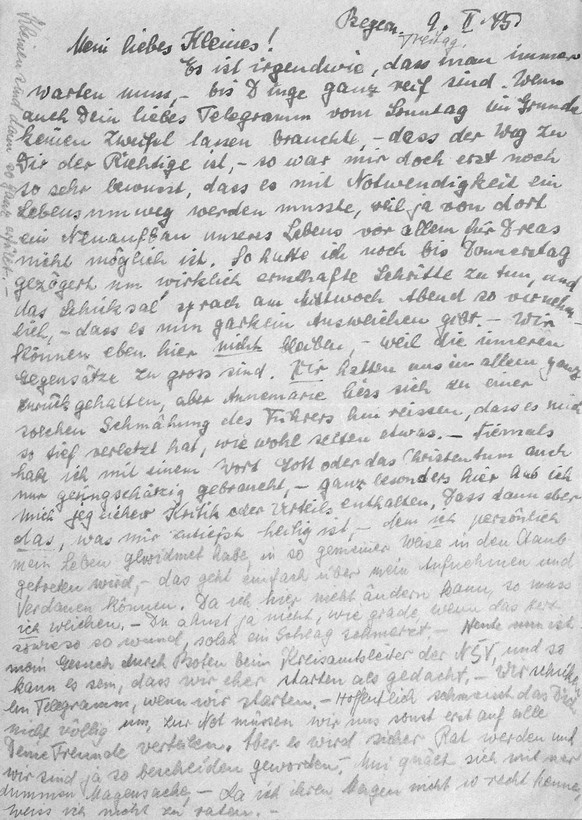 Begern, 9. II. 45
Freitag.
Mein liebes Kleines!
Es ist irgendwie, dass man immer
warten muss, – bis Dinge ganz reif sind. Wenn
auch Dein liebes Telegramm vom Sonntag im Grunde
keinen Zweifel lassen brauchte, – dass der Weg zu
Dir der Richtige ist, – so war mir doch erst noch
so sehr bewusst, dass es mit Notwendigkeit ein
Lebensumweg werden musste, weil ja von dort
ein Neuaufbau unseres Lebens vor allem für Dreas
nicht möglich ist. So hatte ich noch bis Donnerstag
gezögert um wirklich ernsthafte Schritte zu tun, und
das Schicksal sprach am Mittwoch Abend so vernehm-
lich, – dass es nun garkein Ausweichen gibt. – Wir
können eben hier nicht bleiben, – weil die inneren
Gegensätze zu gross sind. Wir hatten uns in allem ganz
zurückgehalten, aber Annemarie liess sich zu einer
solchen Schmähung des Führers hinreissen, dass es mich
so tief verletzt hat, wie wohl selten etwas. – Niemals
habe ich mit einem Wort Gott oder das Christentum auch
nur geringschätzig gebraucht, – ganz besonders hier hab ich
mich jeglicher Kritik oder Urteils enthalten. Dass dann aber
das, was mir zutiefst heilig ist, – dem ich persönlich
mein Leben gewidmet habe, in so gemeiner Weise in den Staub
getreten wird, – das geht einfach über mein Aufnehmen und
Verdauen können. Da ich hier nicht ändern kann, so muss
ich weichen. – Du ahnst ja nicht, wie grade, wenn das Herz
sowieso so wund, solch ein Schlag schmerzt. – Heute nun ist
mein Gesuch durch Boten beim Kreisamtsleiter der NSV, und so
kann es sein, dass wir eher starten als gedacht. – Wir schicken
ein Telegramm, wenn wir starten. – Hoffentlich schmeisst das Dich
nicht völlig um, zur Not müssen wir uns sonst erst auf alle
Deine Freunde verteilen. Aber es wird sicher Rat werden und
wir sind ja so bescheiden geworden, – quält sich mit
dummen Magensache, – da ich ihren Magen nicht so recht kenne,
weiss ich nicht zu raten. –
Kleinen sind dann so ganz erfüllt. –